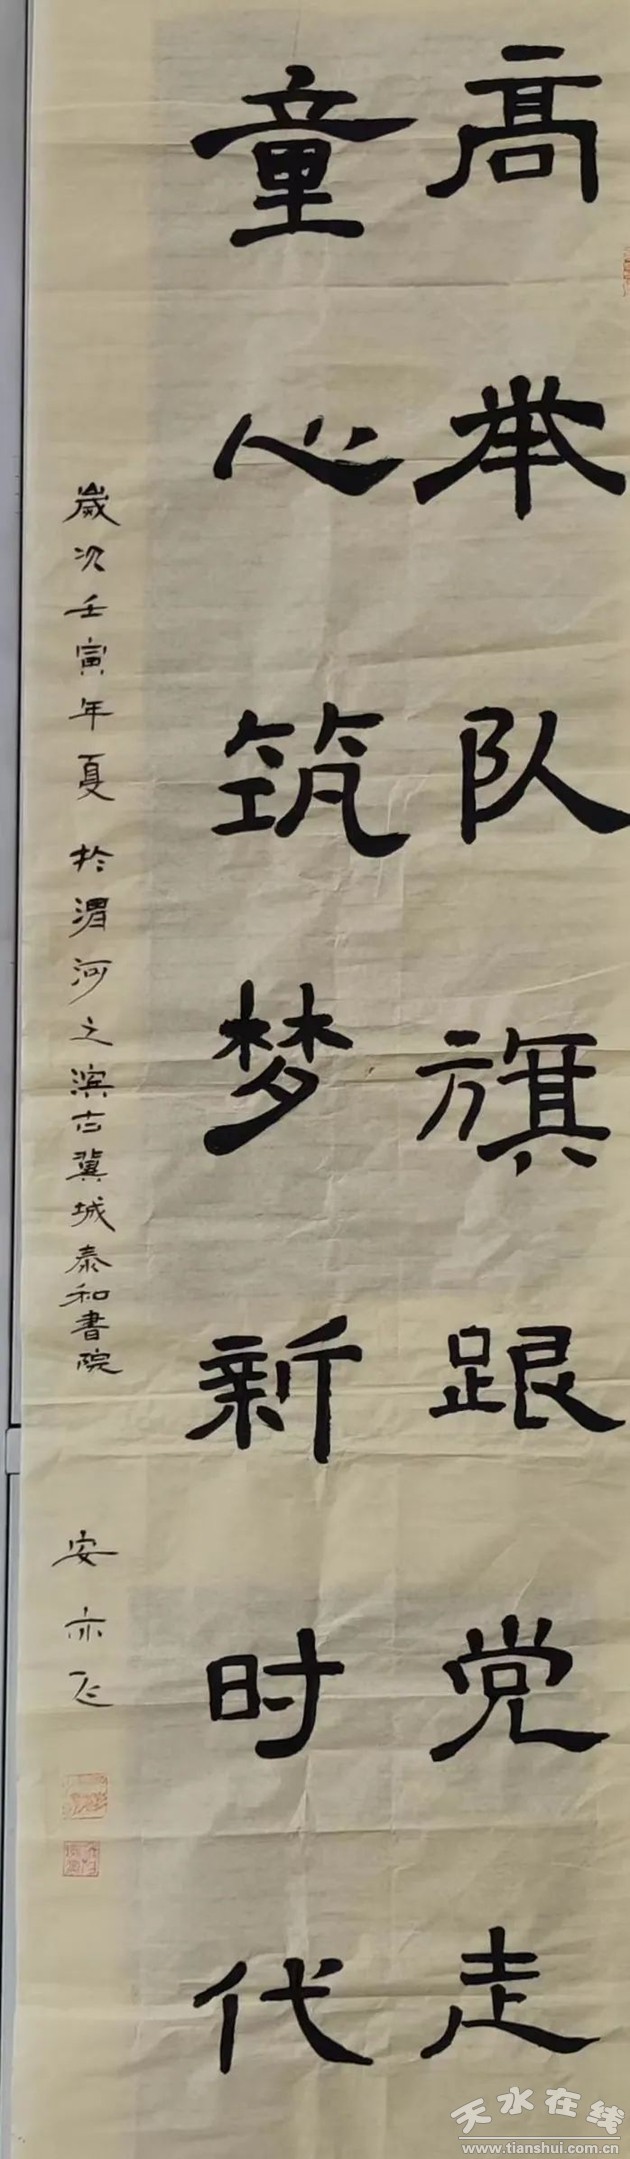 高举队旗跟党走
童心筑梦新时代
歲次壬寅年夏於渭河之滨古冀城泰和書院
安亦飞
天水在线
www.tianshui.com.cn